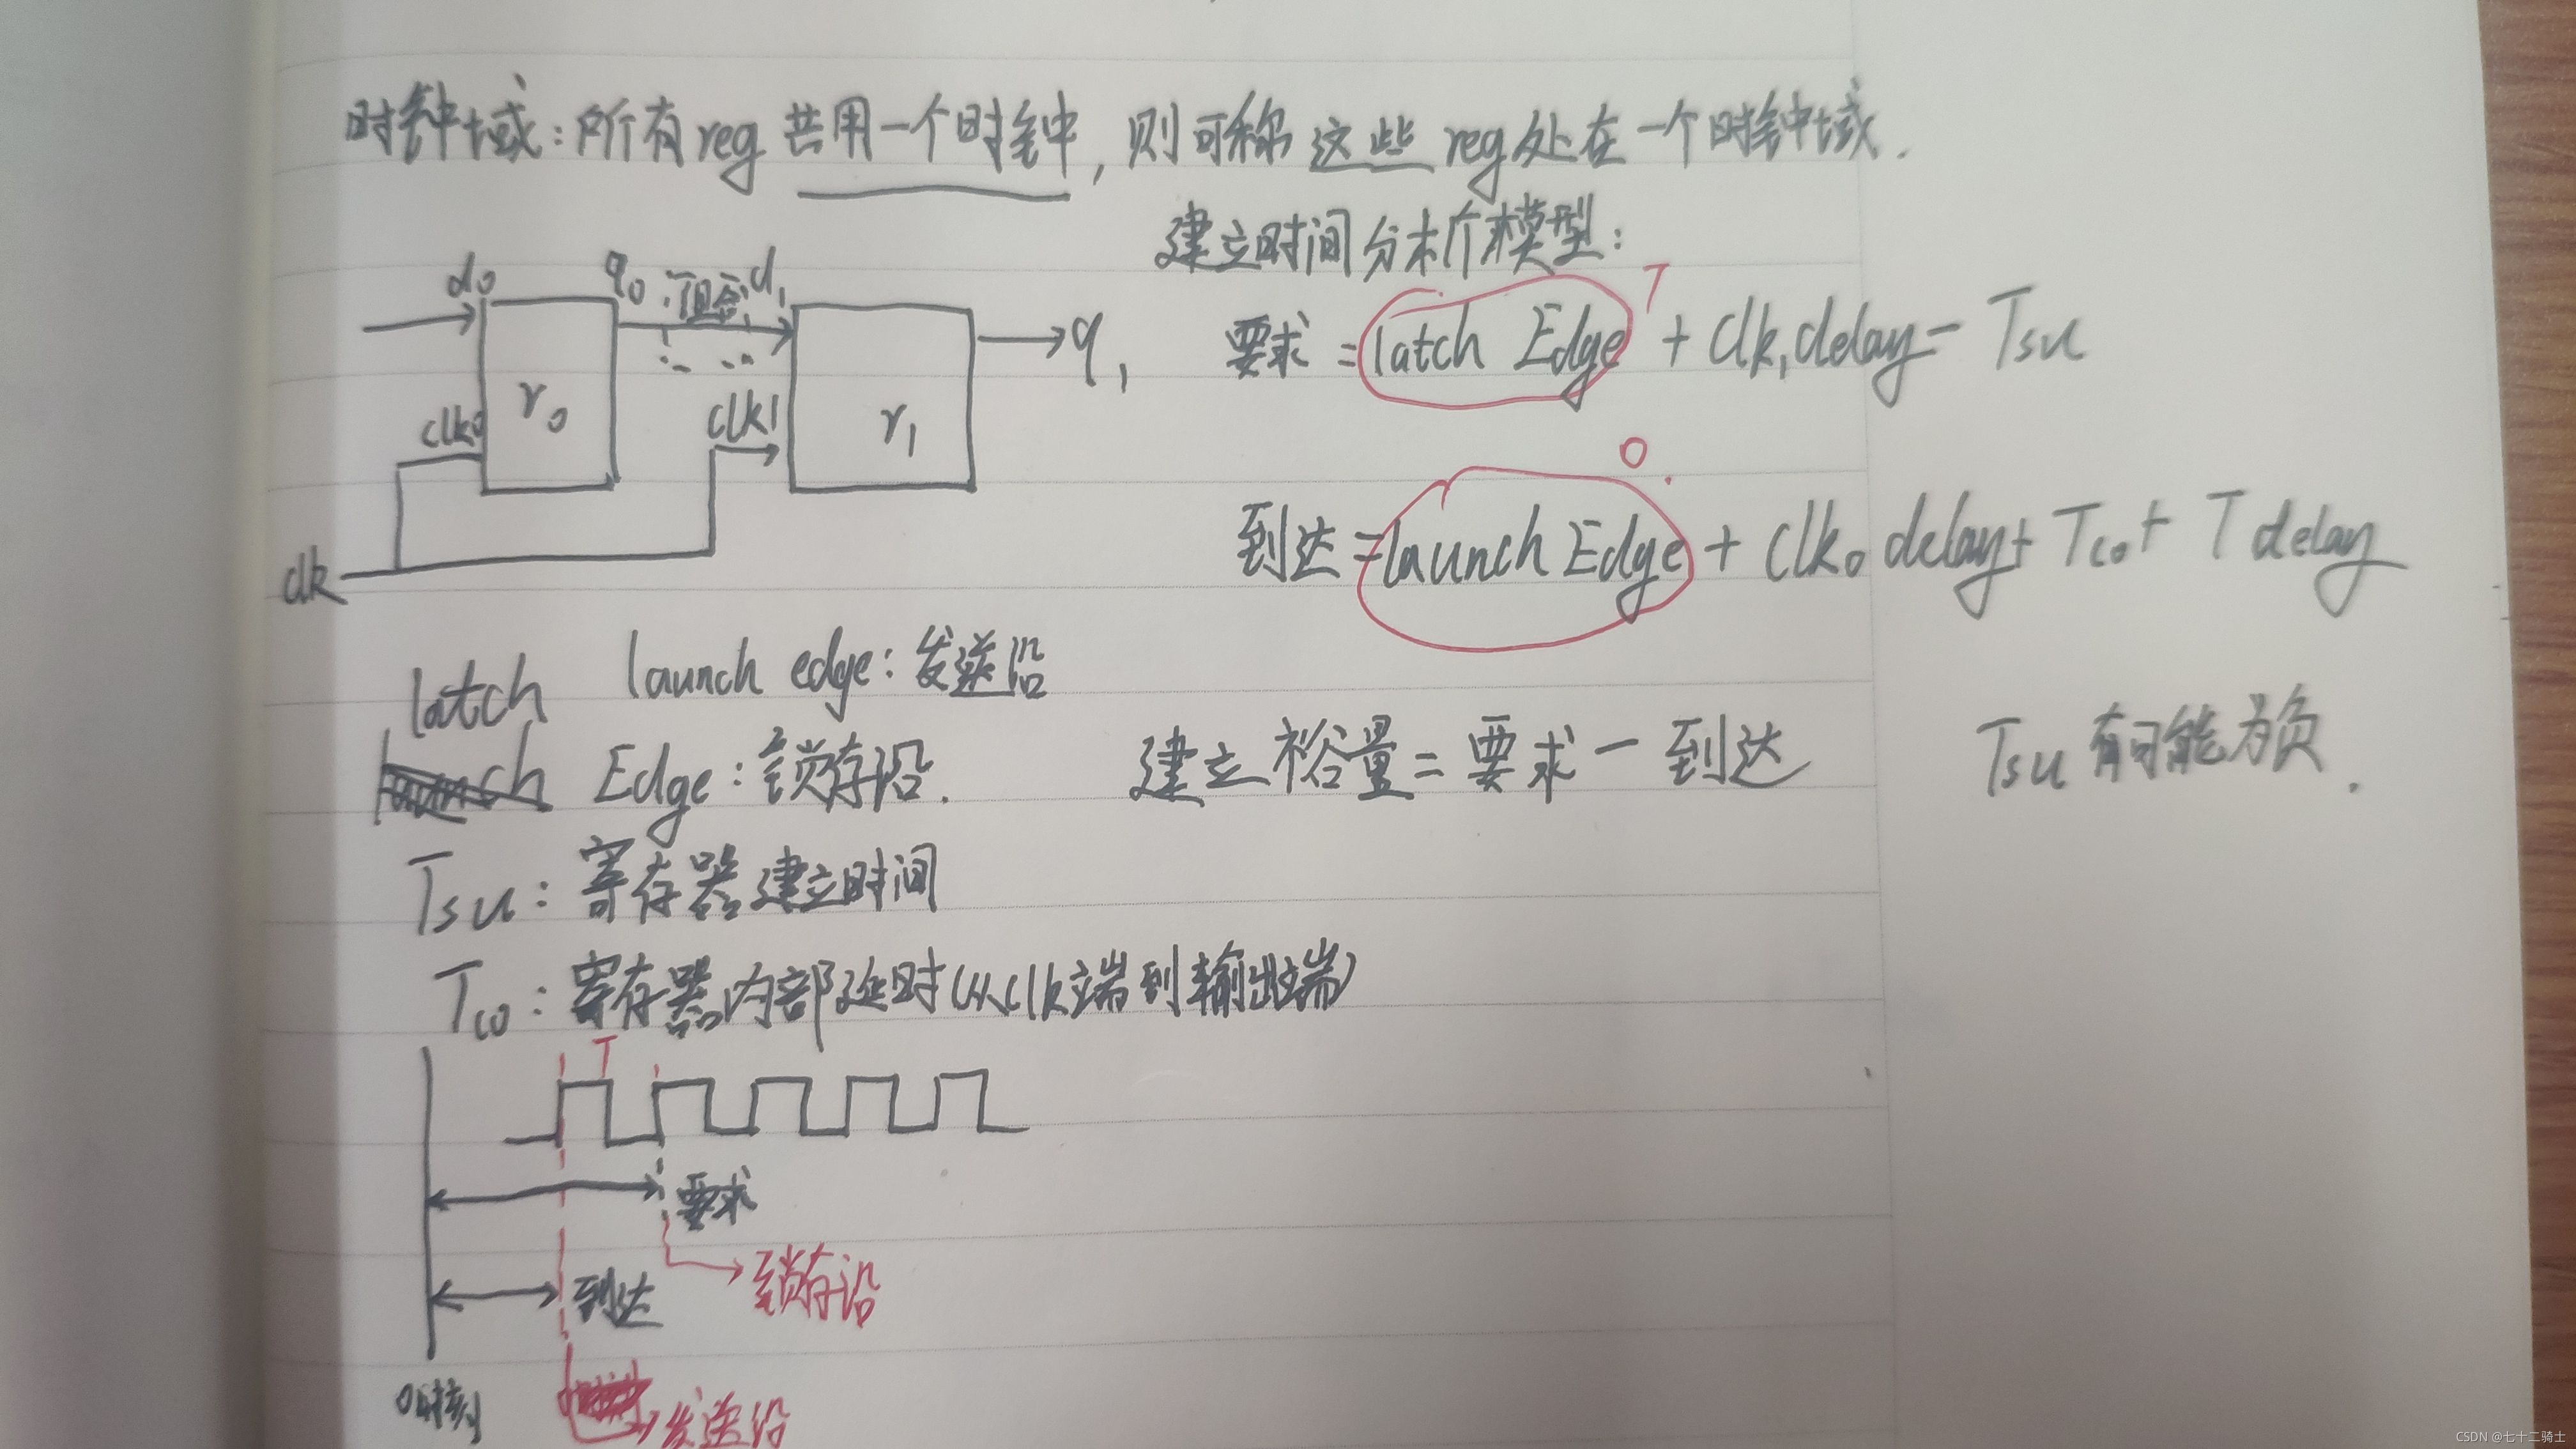 时钟域：所有reg共用一个时钟，则可称这些reg处在一个时钟域．
建立时间分析模型：
d0 q0 组合 d1
T
要求=latch Edge + clk1 delay - Tsu
q1
clk0 r0 clk1 r1
0
到达=launch Edge + clk0 delay + Tco + T delay
clk
launch edge：发送沿
latch
Edge：锁存沿．
建立裕量=要求-到达
Tsu 有可能为负．
Tsu：寄存器建立时间
Tco：寄存器内部延时(从clk端到输出端)
T
要求
锁存沿
到达
0时刻
发送沿
CSDN @七十二骑士